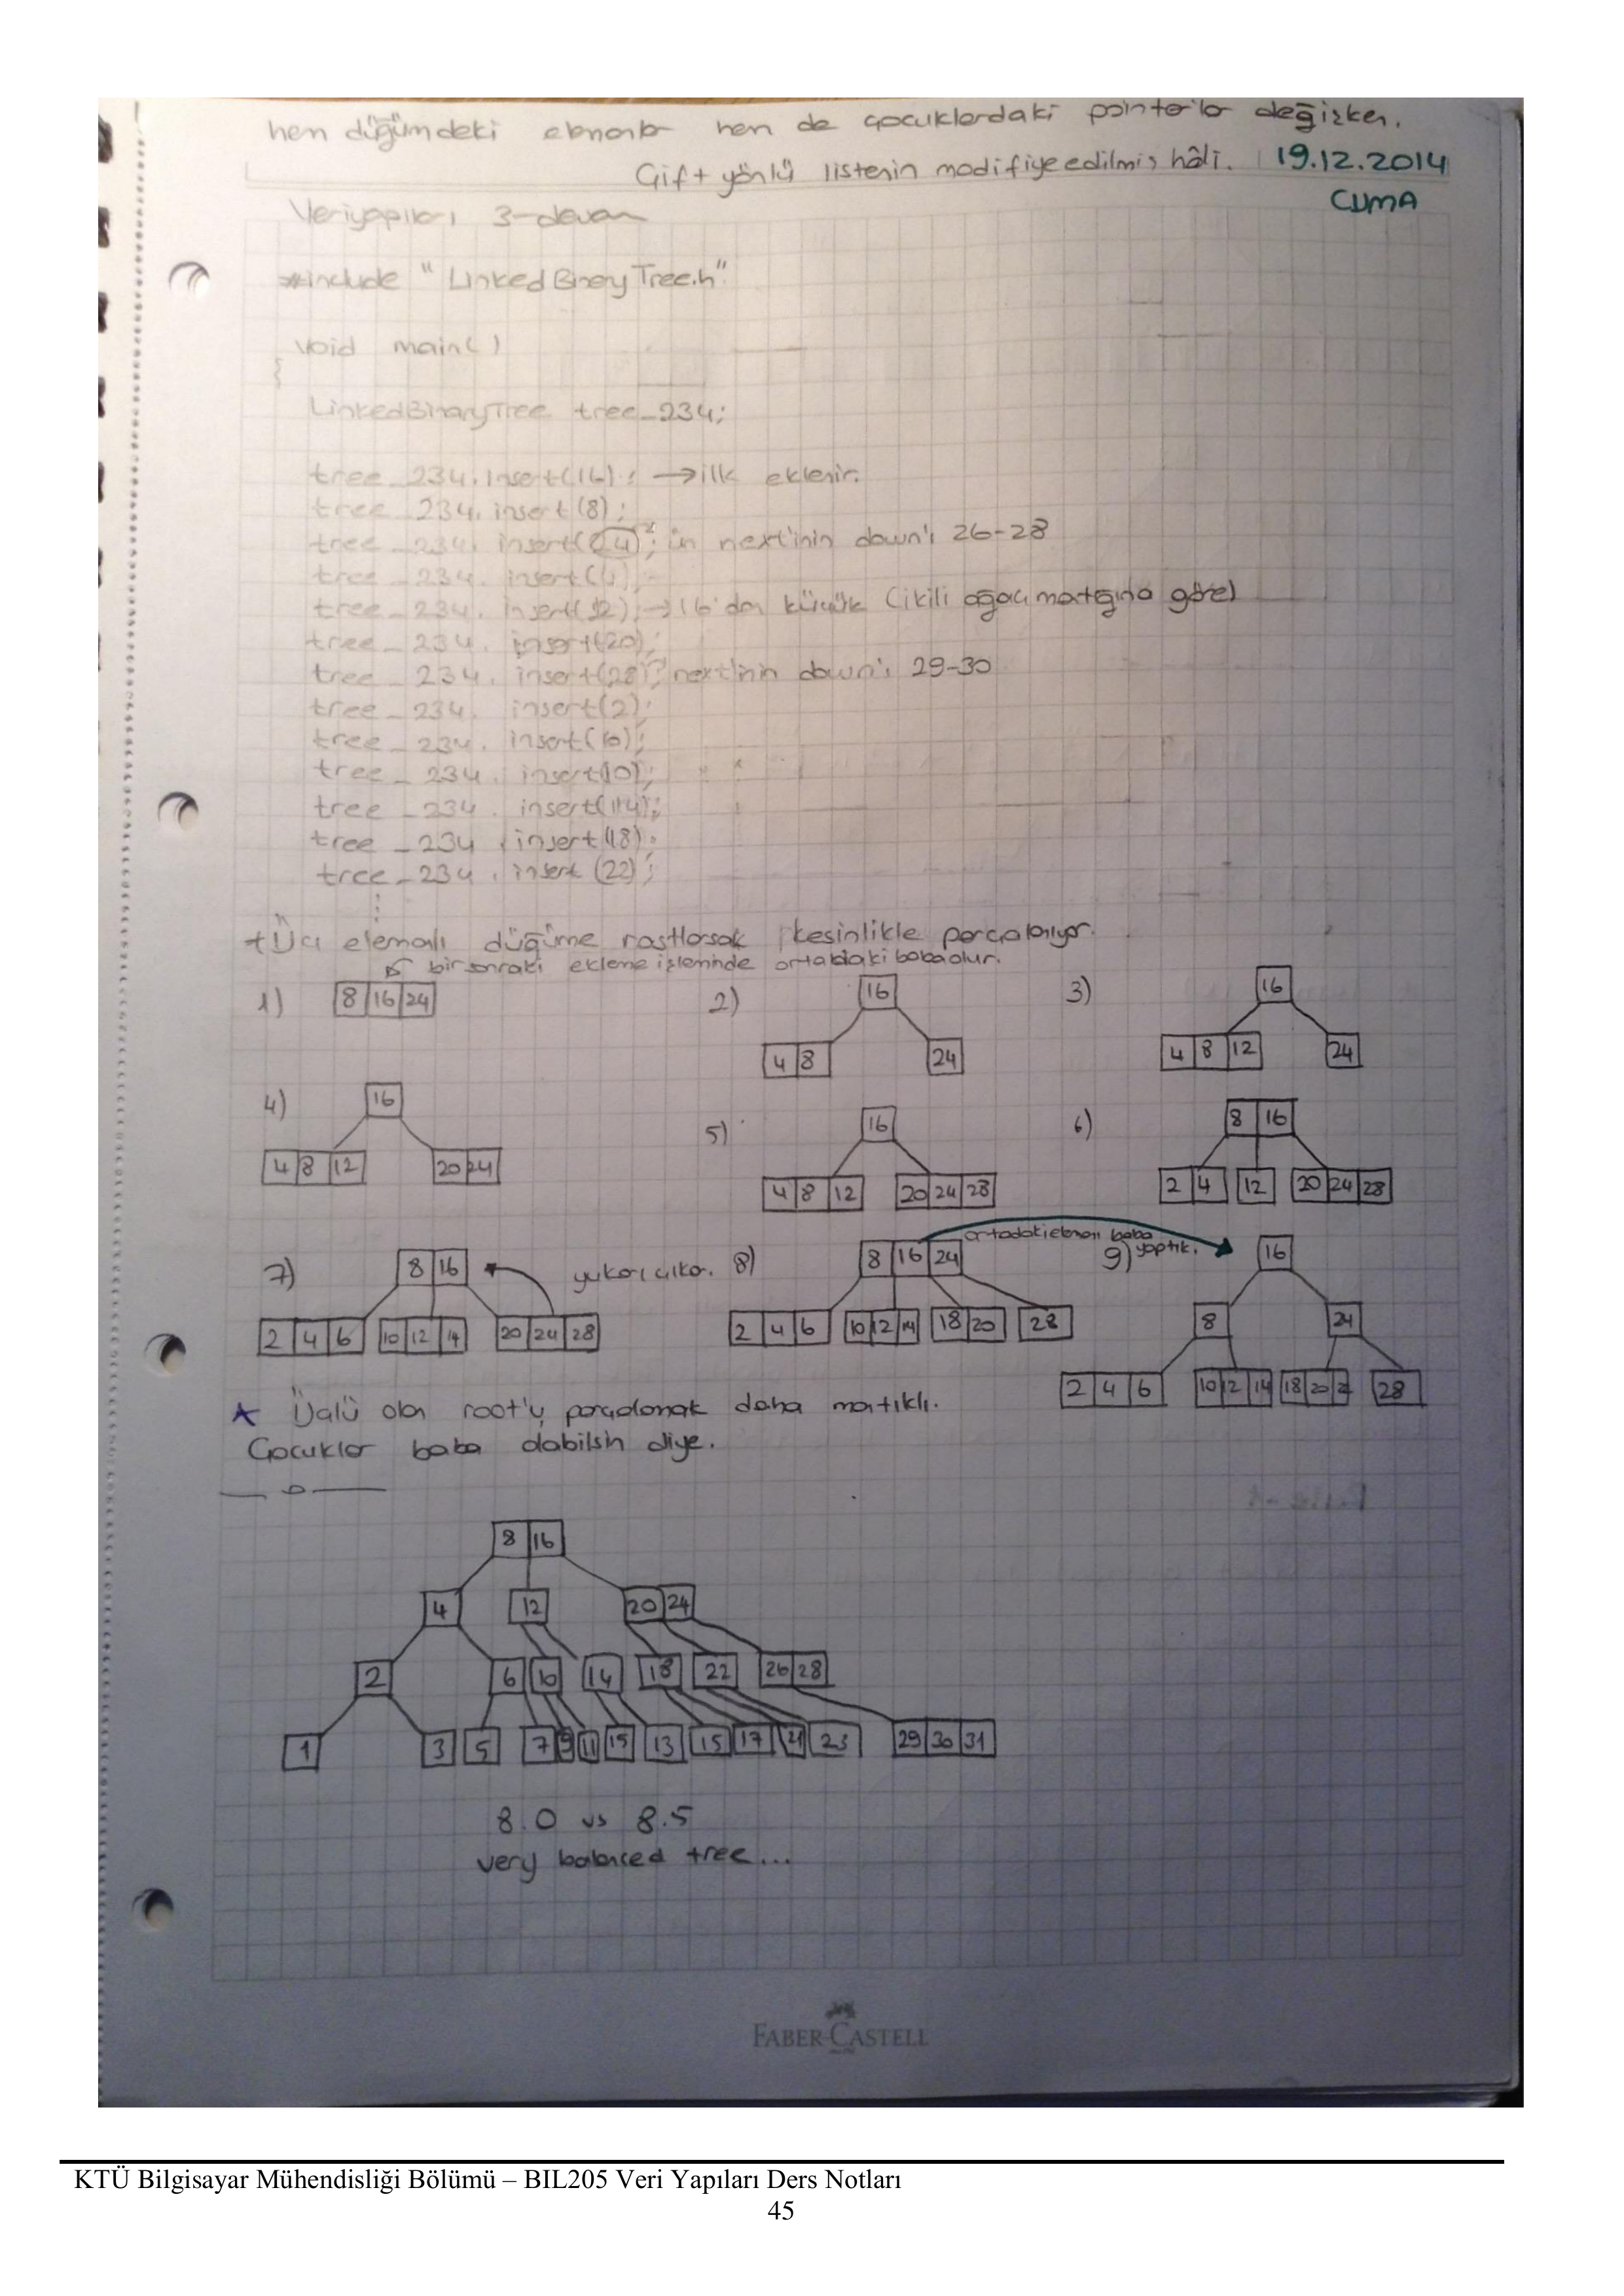 hem düğümdeki elemanlar hem de çocuklardaki pointerlar değişken.
Çift yönlü listenin modifiye edilmiş hâli. 19.12.2014
CUMA
Veriyapıları 3-devam
#include "LinkedBinaryTree.h"
void main()
{
LinkedBinaryTree tree_234;
tree_234.insert(16); → ilk eklenir.
tree_234.insert(8);
tree_234.insert(24); ün next'inin down'ı 26-28
tree_234.insert(4);
tree_234.insert(12); → 16'dan küçük (ikili ağacı mantığına göre)
tree_234.insert(20);
tree_234.insert(28); next'inin down'ı 29-30
tree_234.insert(2);
tree_234.insert(6);
tree_234.insert(10);
tree_234.insert(14);
tree_234.insert(18);
tree_234.insert(22);
⋮
+Üç elemanlı düğüme rastlarsak kesinlikle parçalanıyor.
bir sonraki ekleme işleminde ortadaki baba olur.
1) 8 16 24
2) 16
4 8 24
3) 16
4 8 12 24
4) 16
4 8 12 20 24
5) 16
4 8 12 20 24 28
6) 8 16
2 4 12 20 24 28
7) 8 16 yukarı çıkar.
2 4 6 10 12 14 20 24 28
8) 8 16 24 ortadaki elemanı baba yaptık.
2 4 6 10 12 14 18 20 28
9) 16
8 24
2 4 6 10 12 14 18 20 28
★ Üçlü olan root'u parçalamak daha mantıklı.
Çocuklar baba olabilsin diye.
8 16
4 12 20 24
2 6 10 14 18 22 26 28
1 3 5 7 9 11 15 13 15 17 21 23 29 30 31
8.0 vs 8.5
very balanced tree...
FABER-CASTELL
KTÜ Bilgisayar Mühendisliği Bölümü – BIL205 Veri Yapıları Ders Notları
45